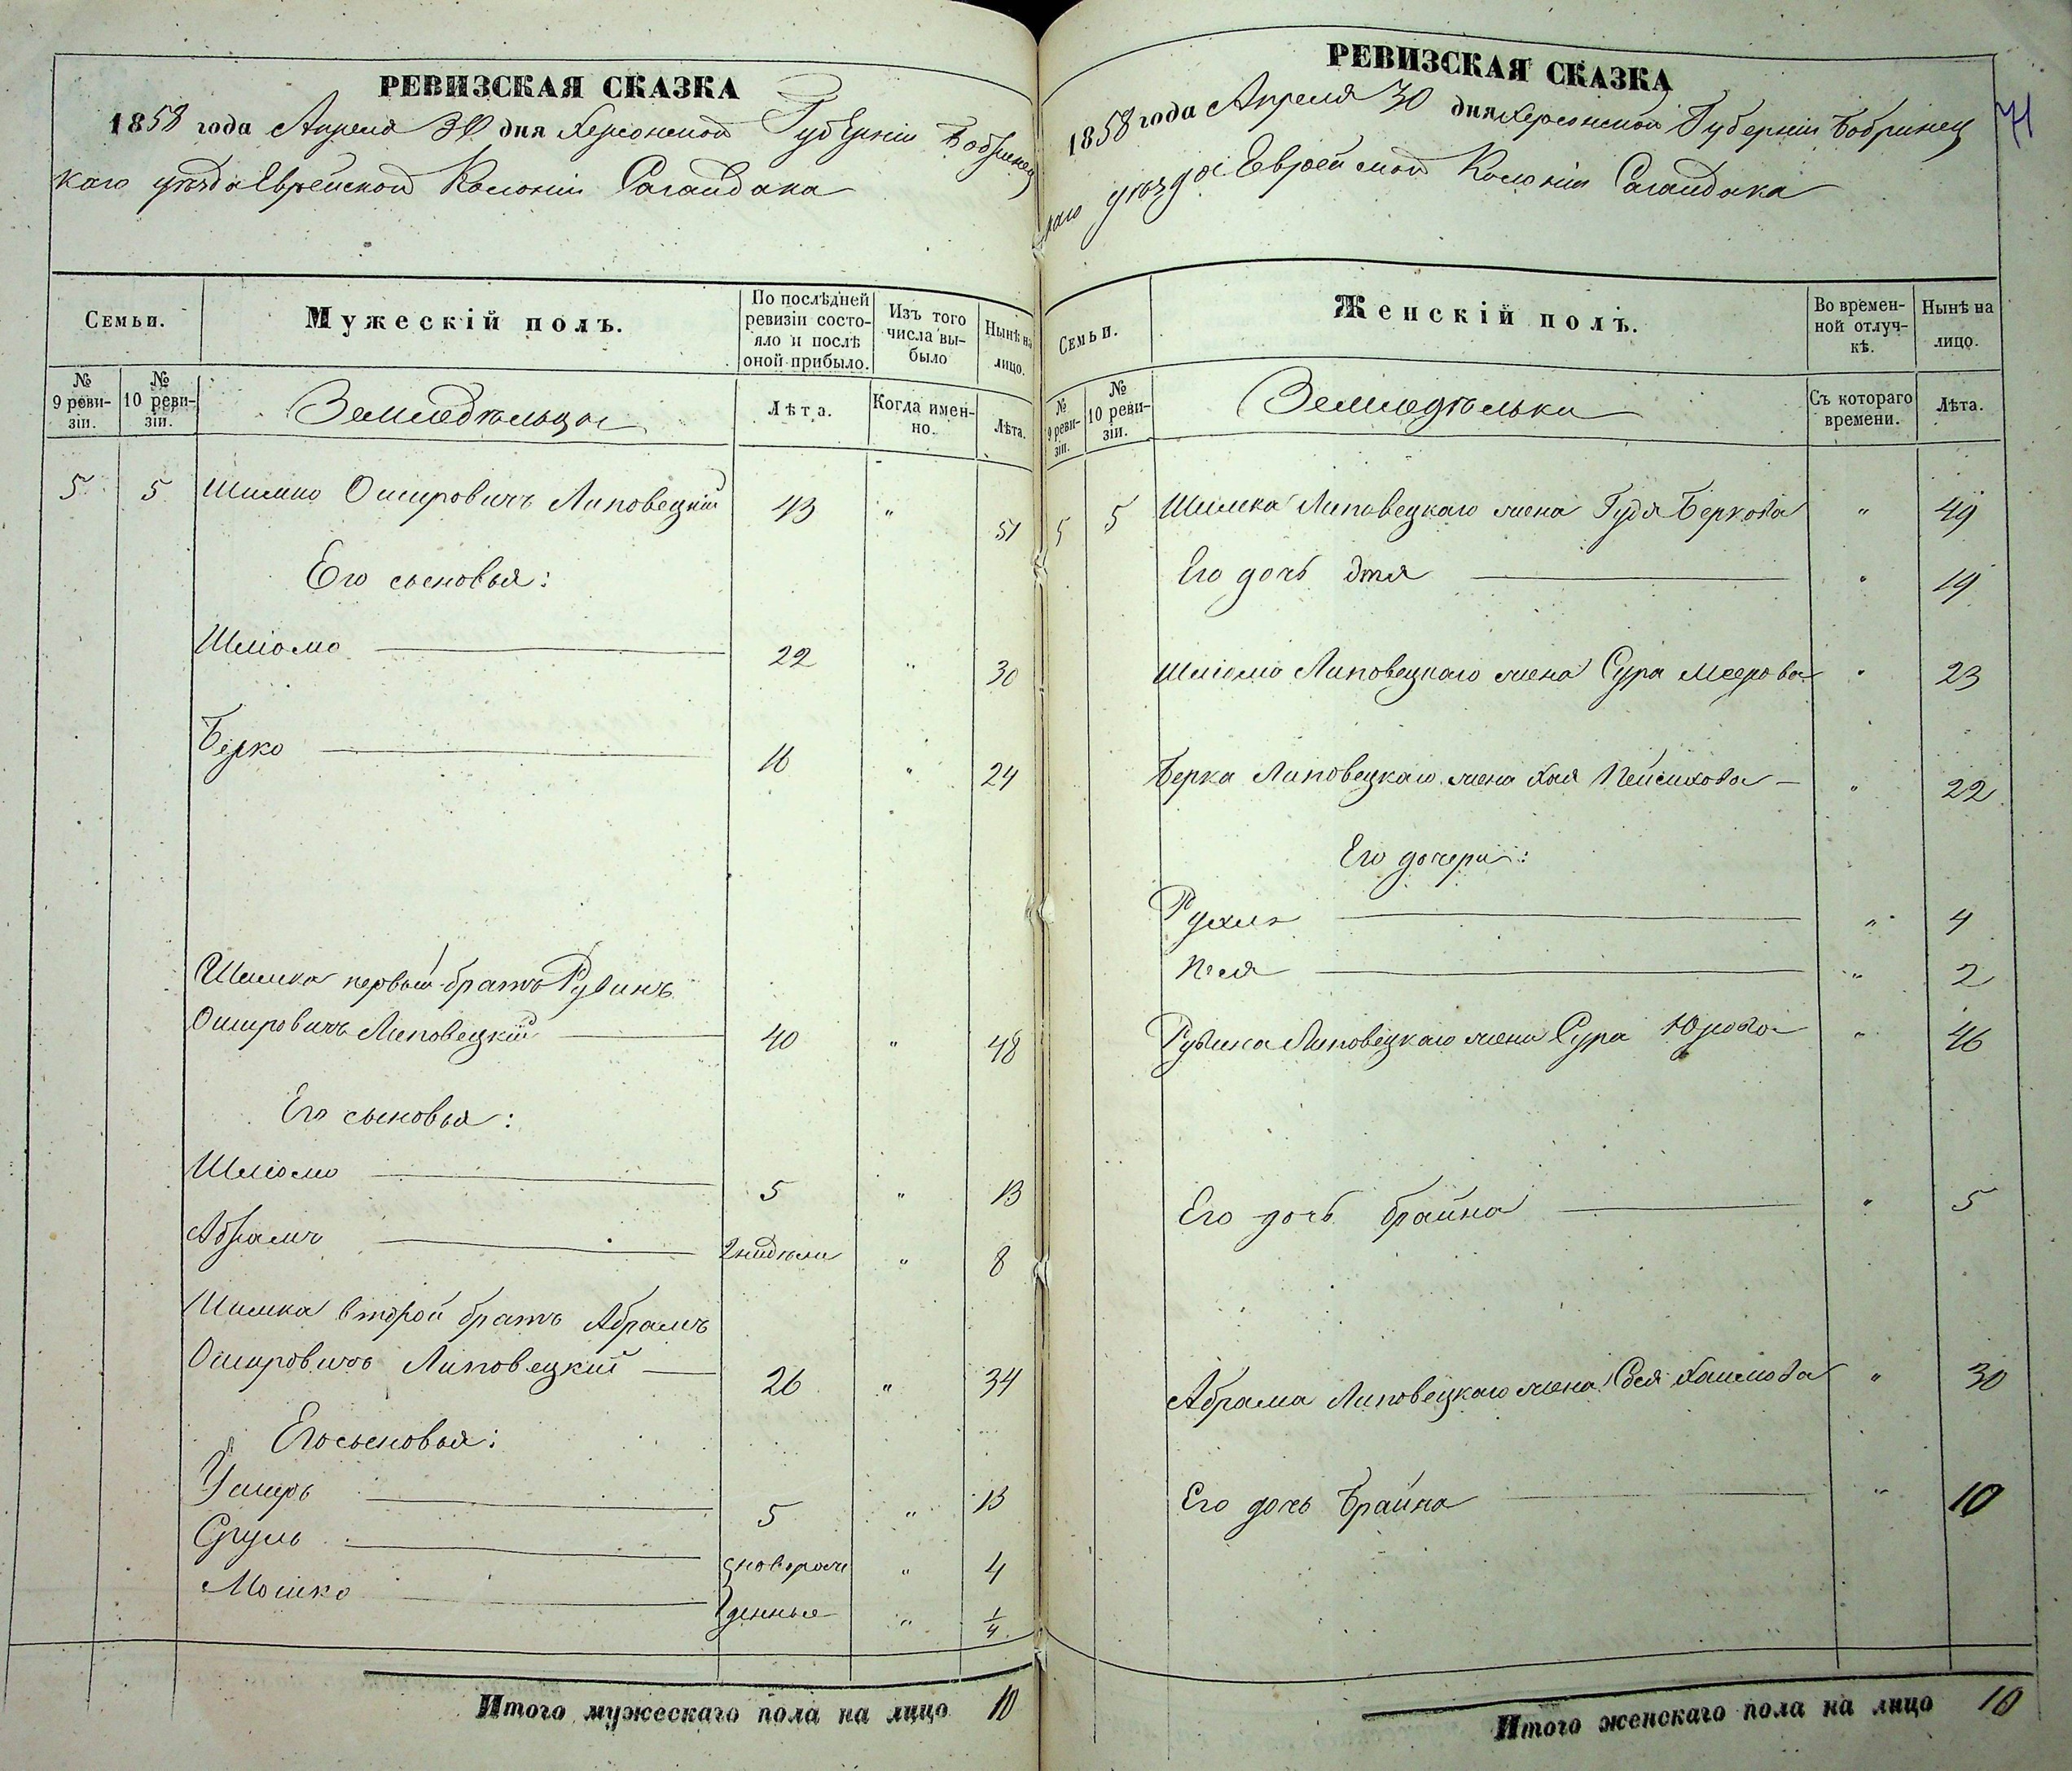 РЕВИЗСКАЯ СКАЗКА
1858 года Апреля 30 дня Херсонской Губерніи Бобринец
каго уѣзда Еврейской Колоніи Сагайдака
Семьи.
Мужескій полъ.
По послѣдней ревизіи состояло и послѣ оной прибыло.
Изъ того числа выбыло
Нынѣ на лицо.
№ 9 ревизіи.
№ 10 ревизіи.
Земледѣльцы
Лѣта.
Когда именно.
Лѣта.
5 5 Шимко Ошировичъ Липовецкій 43 " 51
Его сыновья:
Шліомо 22 " 30
Берко 16 " 24
Шимка первый братъ Рувинъ
Ошировичъ Липовецкій 40 " 48
Его сыновья:
Шліомо 5 " 13
Абрамъ 2 недѣли " 8
Шимка второй братъ Абрамъ
Ошировичъ Липовецкій 26 " 34
Его сыновья:
Уширь 5 " 13
Сруль новорож " 4
Мошко денные " 1/4
Итого мужескаго пола на лицо 10
РЕВИЗСКАЯ СКАЗКА
71
1858 года Апреля 30 дня Херсонской Губерніи Бобринец
каго уѣзда Еврейской Колоніи Сагайдака
Семьи.
Женскій полъ.
Во временной отлучкѣ.
Нынѣ на лицо.
№ 9 ревизіи.
№ 10 ревизіи.
Земледѣлька
Съ котораго времени.
Лѣта.
5 5 Шимка Липовецкаго жена Гудя Беркова " 49
Его дочь " 19
Шліома Липовецкаго жена Сура Меерова " 23
Берка Липовецкаго жена Хая Пейсихова " 22
Его дочери:
Рухля " 4
" 2
Рувина Липовецкаго жена Сура " 46
Его дочь Брайна " 5
Абрама Липовецкаго жена Хаимова " 30
Его дочь Брайна " 10
Итого женскаго пола на лицо 10